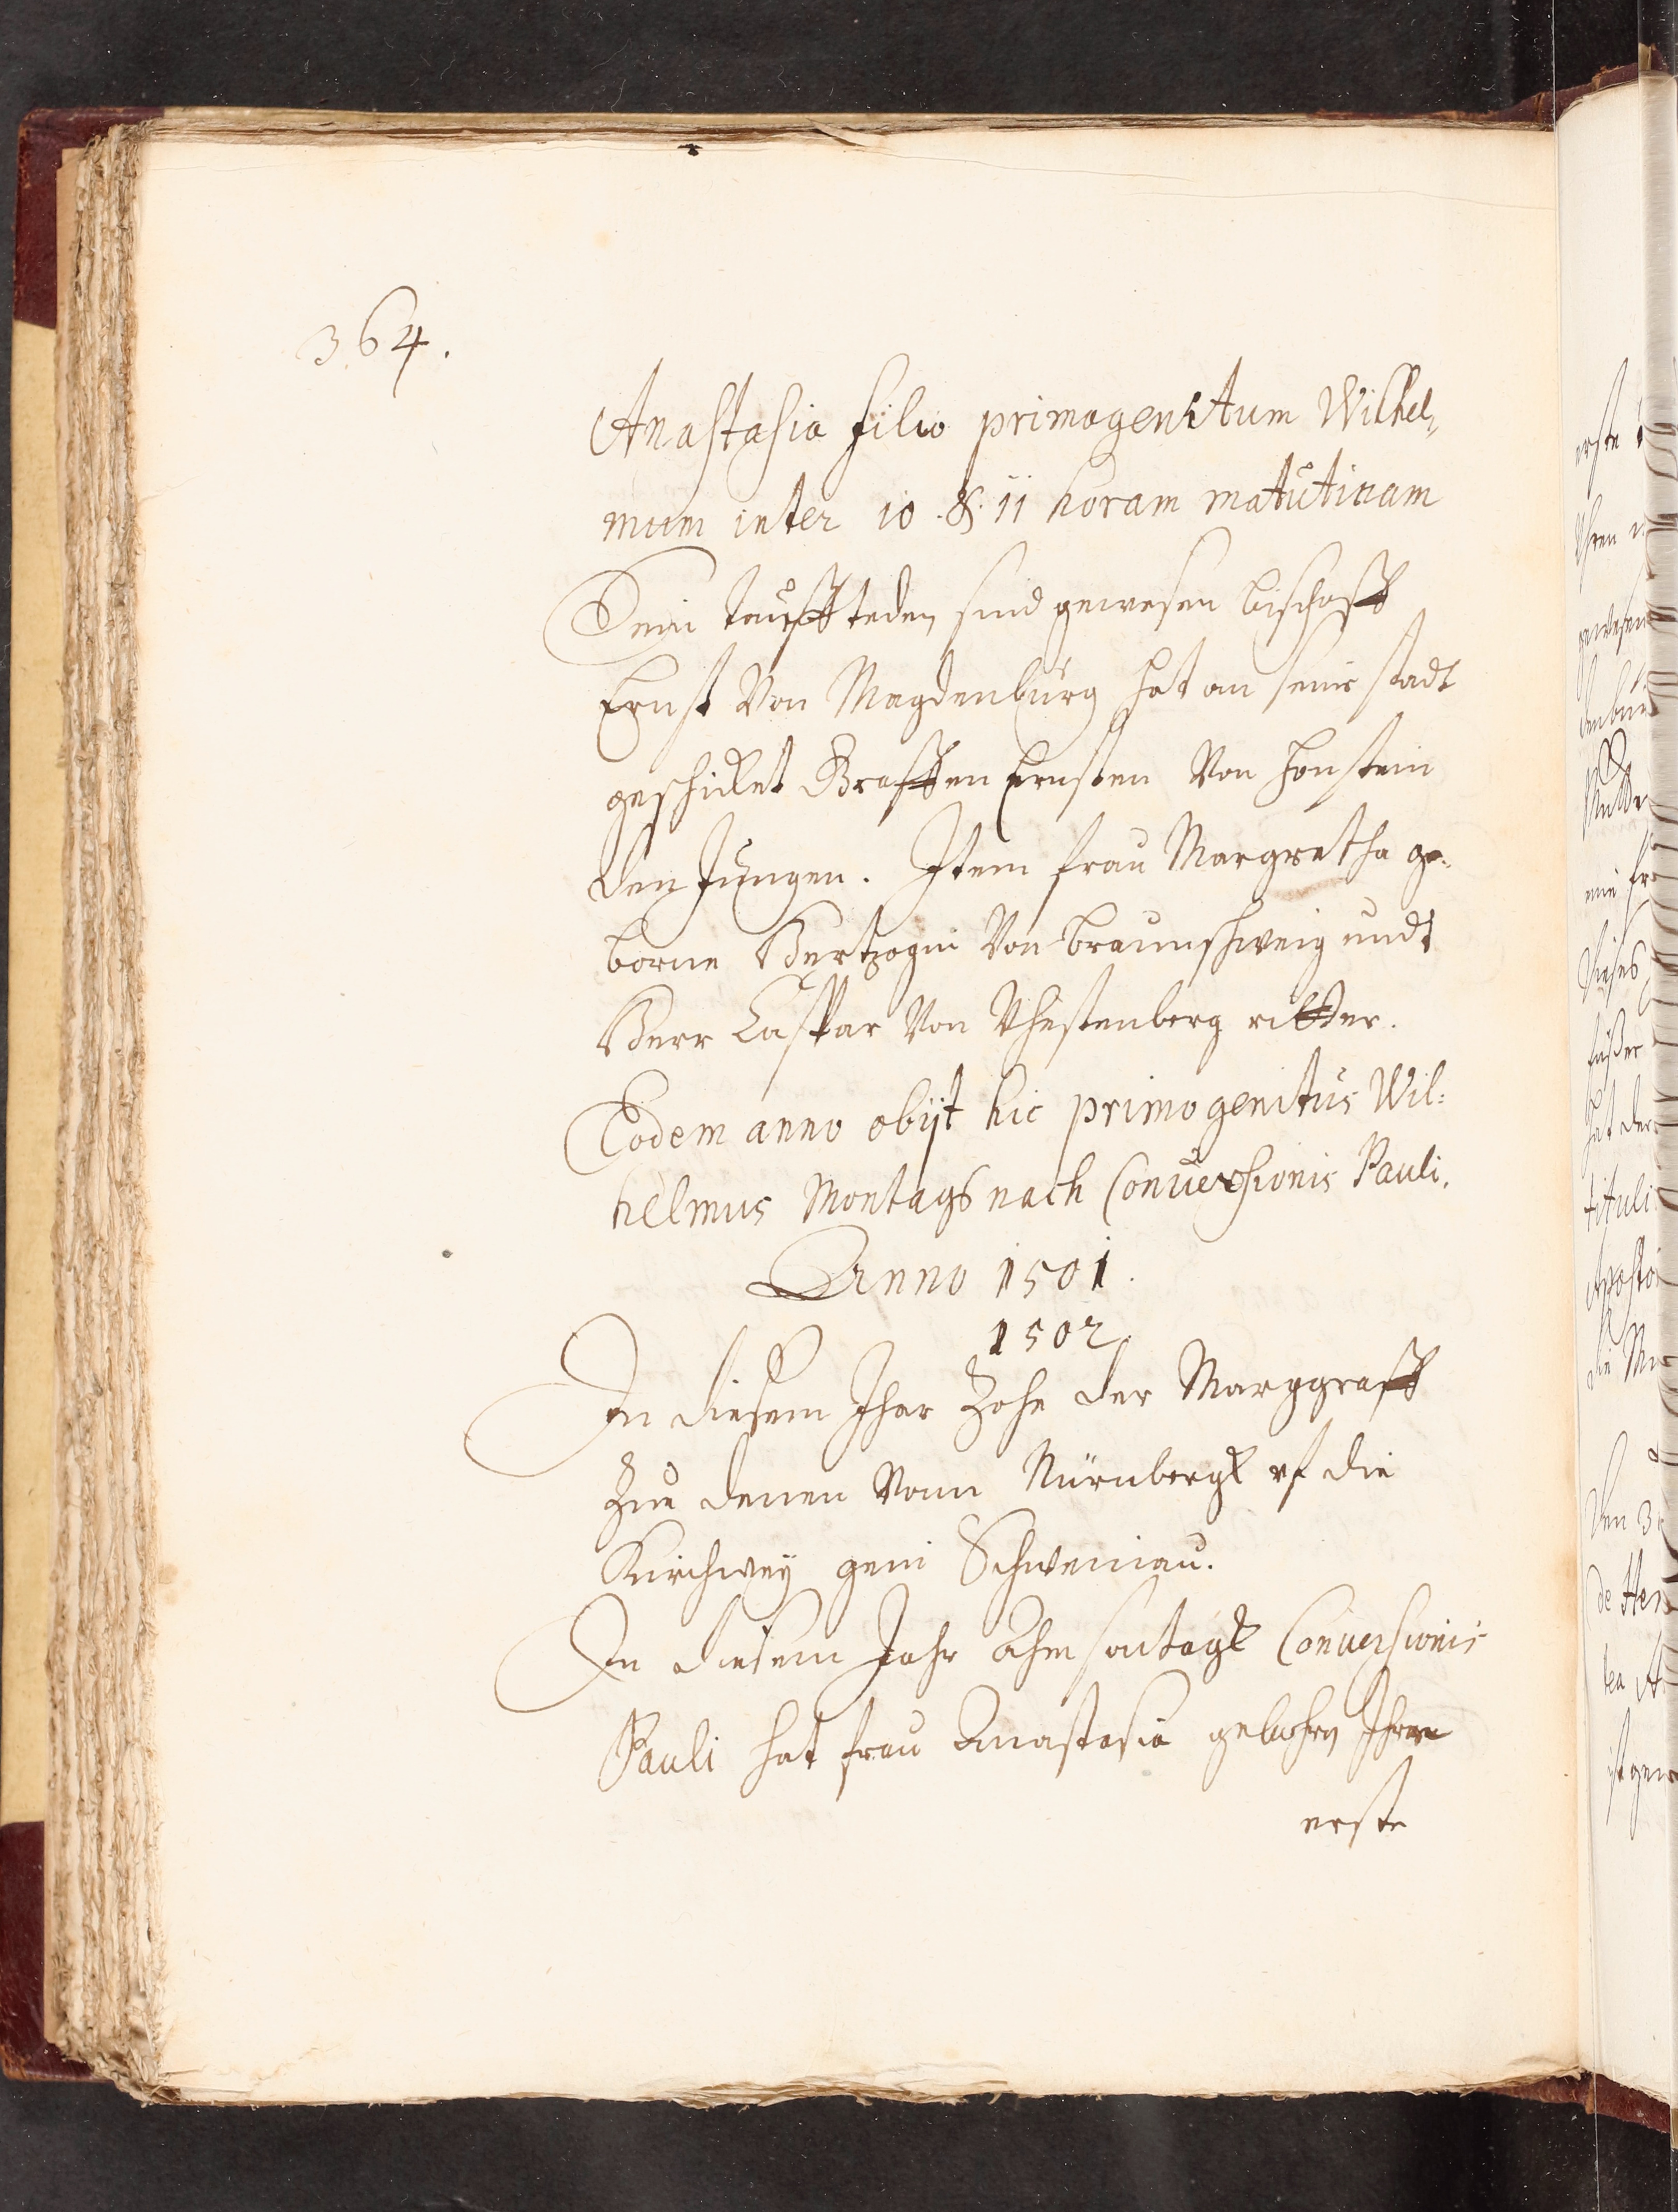 364.
Anastasia filio primogenitum Wilhel,,
mum inter 10 .&. 11 horam matutinam
Sein tauffteden sind gewesen Bischoff
Ernst Von Magdenburg hat an seine stadt
geschicket Graffen Ernsten Von Honstein
den Jungen. Item frau Margretha ge-
borne Hertzogin Von Braunschweig undt
Herr Caspar Von Vhestenberg ritter.
Eodem anno obijt hic primogenitus Wil:
helmus Montags nach Conuersionis Pauli.
Anno 1501.
1502.
In diesem Jhar Zohe der Marggraff
Zue denen Vonn Nürnbergk vf die
Kirchwey gein Schweinau.
In diesem Jahr Ahm sontagk Conuersionis
Pauli hat frau Anastasia gebohrn Ihre
erste